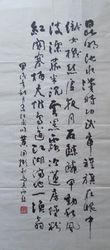 昆明池水漢時功武帝旌旗在眼中
織女機絲虛夜月石鯨鱗甲動秋風
波漂菰米沉雲黑露冷蓮房墜粉
紅關塞極天惟鳥道江湖滿地一漁翁